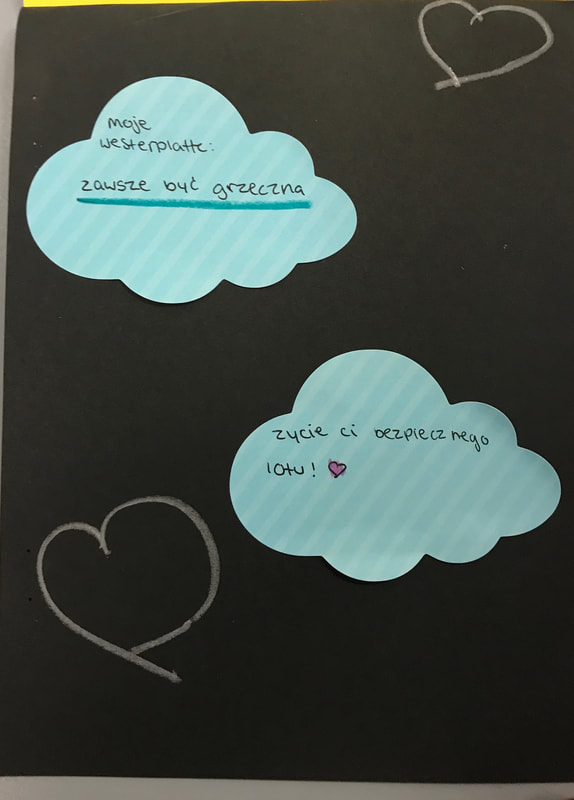 moje
westerplatte:
zawsze być grzeczna
zycie ci bezpiecznego
lotu!